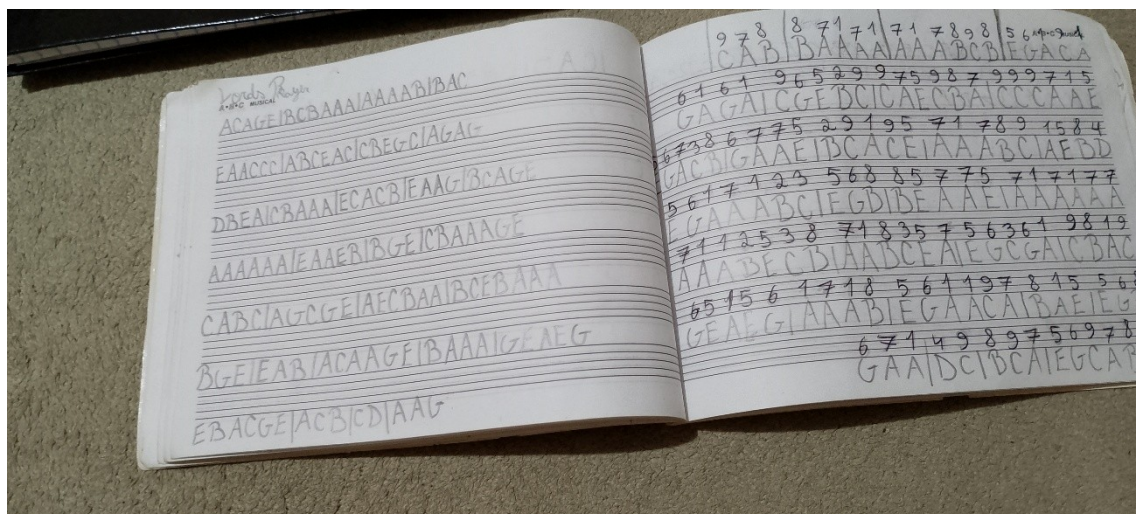 Lords Prayer
MUSICAL
ACAGE|BCBAAA|AAAAB|BAC
EAACCC|ABCEAC|CBEGC|AGAG
DBEA|CBAAA|ECACB|EAAG|BCAGE
AAAAAA|EAAEB|BGE|CBAAAGE
CABC|AGCGE|AECBAA|BCEBAAA
BGE|EAB|ACAAGE|BAAA|GEAEG
EBACGE|ACB|CD|AAG
9 7 8 8 7 1 7 1 7 1 7 8 9 8 5 6
CAB|BAAAA|AAABCB|EGACA
6 1 6 1 9 6 5 2 9 9 7 5 9 8 7 9 9 9 7 1 5
GAGA|CGEBC|CAECBA|CCCAAE
6 7 3 8 6 7 7 5 2 9 1 9 5 7 1 7 8 9 1 5 8 4
GACB|GAAE|BCACE|AAABC|AEBD
5 6 1 7 1 2 3 5 6 8 8 5 7 7 5 7 1 7 1 7 7
EGAAABC|EGB|BEAAE|AAAAAA
7 1 1 2 5 3 8 7 1 8 3 5 7 5 6 3 6 1 9 8 1 9
AAABECB|AABCEA|EGCGA|CBAC
6 5 1 5 6 1 7 1 8 5 6 1 1 9 7 8 1 5 5 6
GEAEG|AAAB|EGAACA|BAE|EG
6 7 1 4 9 8 9 7 5 6 9 7 8
GAA|DC|BCA|EGCAB